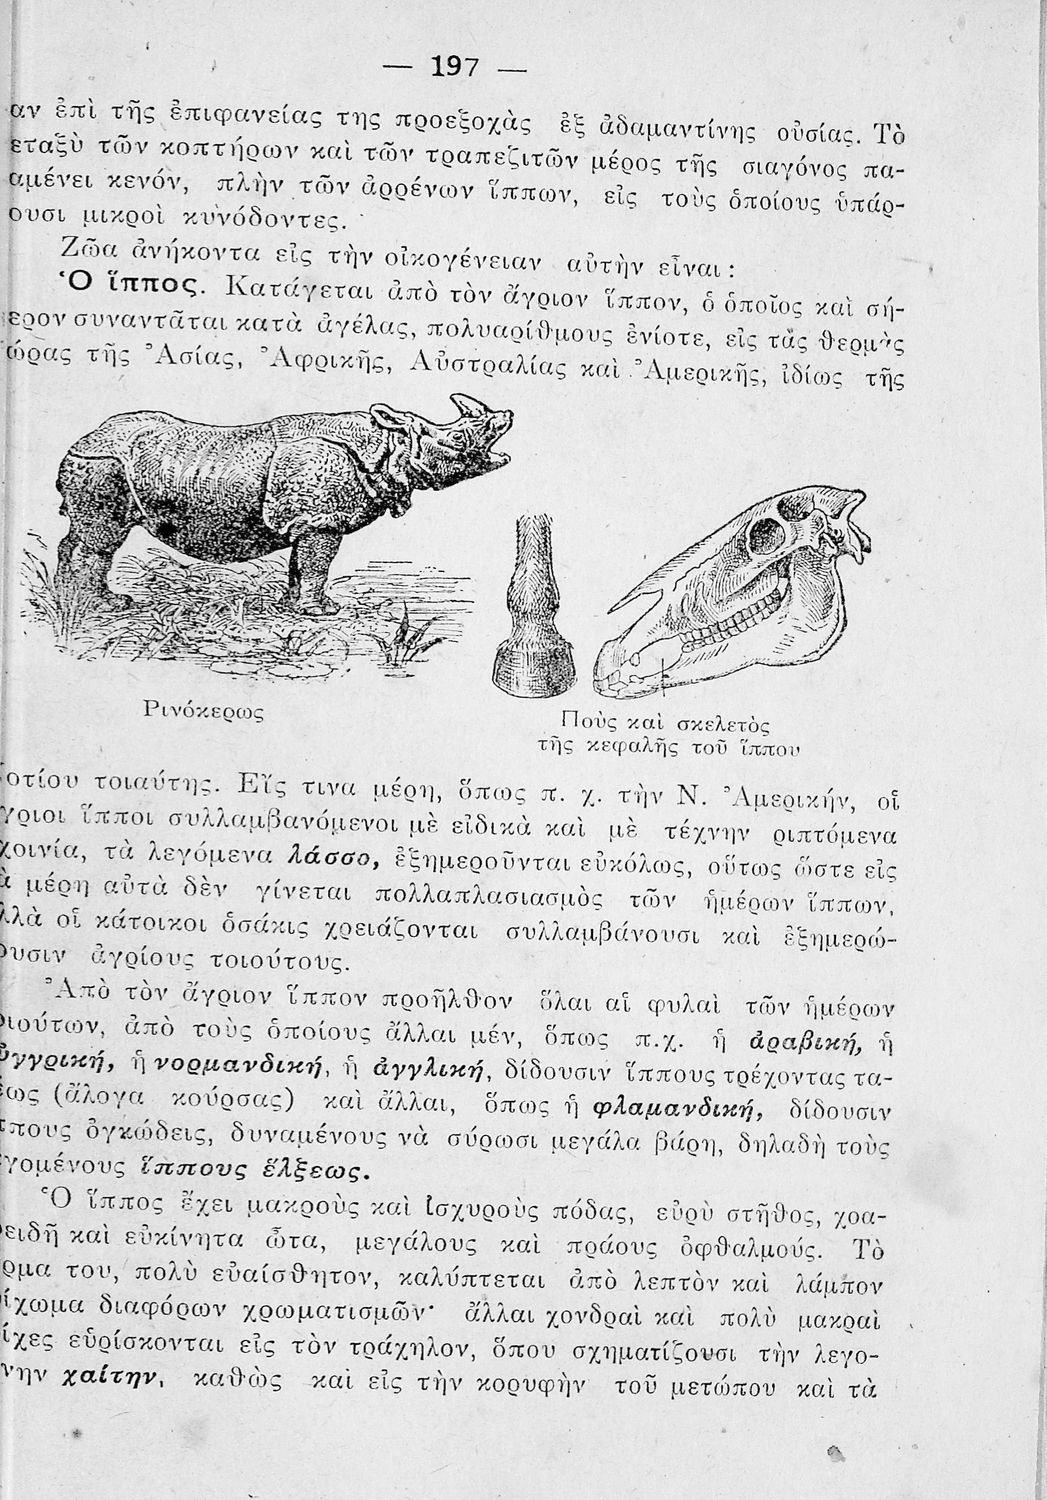 — 197 —
αν ἐπὶ τῆς ἐπιφανείας της προεξοχὰς ἐξ ἀδαμαντίνης οὐσίας. Τὸ
εταξὺ τῶν κοπτήρων καὶ τῶν τραπεζιτῶν μέρος τῆς σιαγόνος πα-
αμένει κενόν, πλὴν τῶν ἀρρένων ἵππων, εἰς τοὺς ὁποίους ὑπάρ-
ουσι μικροὶ κυνόδοντες.
Ζῶα ἀνήκοντα εἰς τὴν οἰκογένειαν αὐτὴν εἶναι :
Ὁ ἵππος. Κατάγεται ἀπὸ τὸν ἄγριον ἵππον, ὁ ὁποῖος καὶ σή-
ερον συναντᾶται κατὰ ἀγέλας, πολυαρίθμους ἐνίοτε, εἰς τὰς θερμὰς
ώρας τῆς Ἀσίας, Ἀφρικῆς, Αὐστραλίας καὶ Ἀμερικῆς, ἰδίως τῆς
Ρινόκερως
Ποὺς καὶ σκελετὸς
τῆς κεφαλῆς τοῦ ἵππου
οτίου τοιαύτης. Εἴς τινα μέρη, ὅπως π. χ. τὴν Ν. Ἀμερικήν, οἱ
γριοι ἵπποι συλλαμβανόμενοι μὲ εἰδικὰ καὶ μὲ τέχνην ριπτόμενα
χοινία, τὰ λεγόμενα λάσσο, ἐξημεροῦνται εὐκόλως, οὕτως ὥστε εἰς
ὰ μέρη αὐτὰ δὲν γίνεται πολλαπλασιασμὸς τῶν ἡμέρων ἵππων,
λλὰ οἱ κάτοικοι ὁσάκις χρειάζονται συλλαμβάνουσι καὶ ἐξημερώ-
ουσιν ἀγρίους τοιούτους.
Ἀπὸ τὸν ἄγριον ἵππον προῆλθον ὅλαι αἱ φυλαὶ τῶν ἡμέρων
οιούτων, ἀπὸ τοὺς ὁποίους ἄλλαι μέν, ὅπως π.χ. ἡ ἀραβική, ἡ
ὑγγρική, ἡ νορμανδική, ἡ ἀγγλική, δίδουσιν ἵππους τρέχοντας τα-
έως (ἄλογα κούρσας) καὶ ἄλλαι, ὅπως ἡ φλαμανδική, δίδουσιν
ππους ὀγκώδεις, δυναμένους νὰ σύρωσι μεγάλα βάρη, δηλαδὴ τοὺς
εγομένους ἵππους ἕλξεως.
Ὁ ἵππος ἔχει μακροὺς καὶ ἰσχυροὺς πόδας, εὐρὺ στῆθος, χοα-
οειδῆ καὶ εὐκίνητα ὦτα, μεγάλους καὶ πράους ὀφθαλμούς. Τὸ
ρμα του, πολὺ εὐαίσθητον, καλύπτεται ἀπὸ λεπτὸν καὶ λάμπον
ίχωμα διαφόρων χρωματισμῶν· ἄλλαι χονδραὶ καὶ πολὺ μακραὶ
ίχες εὑρίσκονται εἰς τὸν τράχηλον, ὅπου σχηματίζουσι τὴν λεγο-
νην χαίτην, καθὼς καὶ εἰς τὴν κορυφὴν τοῦ μετώπου καὶ τὰ